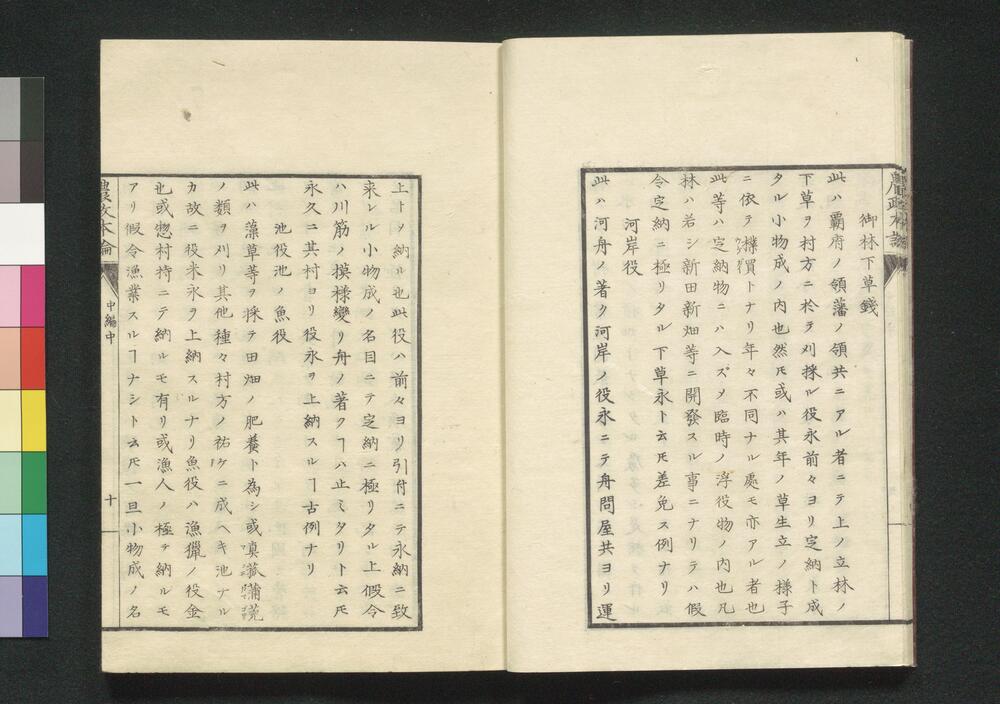 御林下草錢
此ハ覇府ノ領藩ノ領共ニアル者ニテ上ノ立林ノ
下草ヲ村方ニ於テ刈採ル役永前々ヨリ定納ト成
タル小物成ノ内也然𪜈或ハ其年ノ草生立ノ樣子
ニ依テ糶買トナリ年々不同ナル處モ亦アル者也
此等ハ定納物ニハ入ズ〆臨時ノ浮役物ノ内也凡
林ハ若シ新田新畑等ニ開發スル事ニナリテハ假
令定納ニ極リタル下草永ト云𪜈差免ス例ナリ
河岸役
此ハ河舟ノ著ク河岸ノ役永ニテ舟問屋共ヨリ運
上ト〆納ル也此役ハ前々ヨリ引付ニテ永納ニ致
来レル小物成ノ名目ニテ定納ニ極リタル上假令
ハ川筋ノ摸樣變リ舟ノ著クヿハ止ミタリト云𪜈
永久ニ其村ヨリ役永ヲ上納スルヿ古例ナリ
池役池ノ魚役
此ハ藻草等ヲ採テ田畑ノ肥養ト為シ或
ノ類ヲ刈リ其他種々村方ノ祐ケニ成ヘキ池ナル
カ故ニ役米永ヲ上納スルナリ魚役ハ漁獵ノ役金
也或惣村持ニテ納ルモ有リ或漁人ノ極テ納ルモ
アリ假令漁業スルヿナシト云𪜈一旦小物成ノ名
農政本論
中編中
十